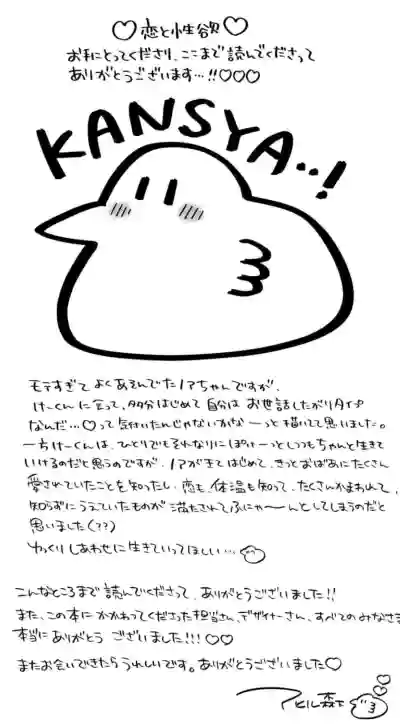 ♡恋と性欲♡
お手にとってくださり、ここまで読んでくださって
ありがとうございます…!!♡♡♡
KANSYA..!
モテすぎて よくあそんでたノアちゃんですが、
けーくんに会って、多分はじめて自分は お世話したがりタイプ
なんだ…♡って気付いたんじゃないかな〜っと描いてて思いました。
一方けーくんは、ひとりでもそれなりにぽけーっとしつつもちゃんと生きて
いけるのだと思うのですが、ノアがきてはじめて、きっとおばあにたくさん
愛されていたことを知ったし、恋も、体温も知って、たくさんかまわれて、
知らずにうえていたものが 満たされてふにゃ〜んとしてしまうのだと
思いました(??)
ゆっくりしあわせに生きていってほしい…
こんなところまで 読んでくださって、ありがとうございました!!
また、この本にかかわってくださった担当さん、デザイナーさん、すべてのみなさま
本当にありがとう ございました!!!♡♡
またお会いできたら うれしいです。ありがとうございました♡
アヒル森下